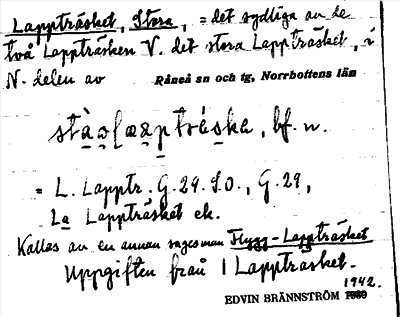 Lappträsket, Stora, = det sydliga av de
två Lappträsken V. det stora Lappträsket, i
N. delen av Råneå sn och tg, Norrbottens län
bf. n.
= L. Lapptr. G.29.S.O., G.29,
La Lappträsket ek.
Kallas av en annan sagesman Flygg-Lappträsket
Uppgiften från Lappträsket.
1942.
EDVIN BRÄNNSTRÖM 1939